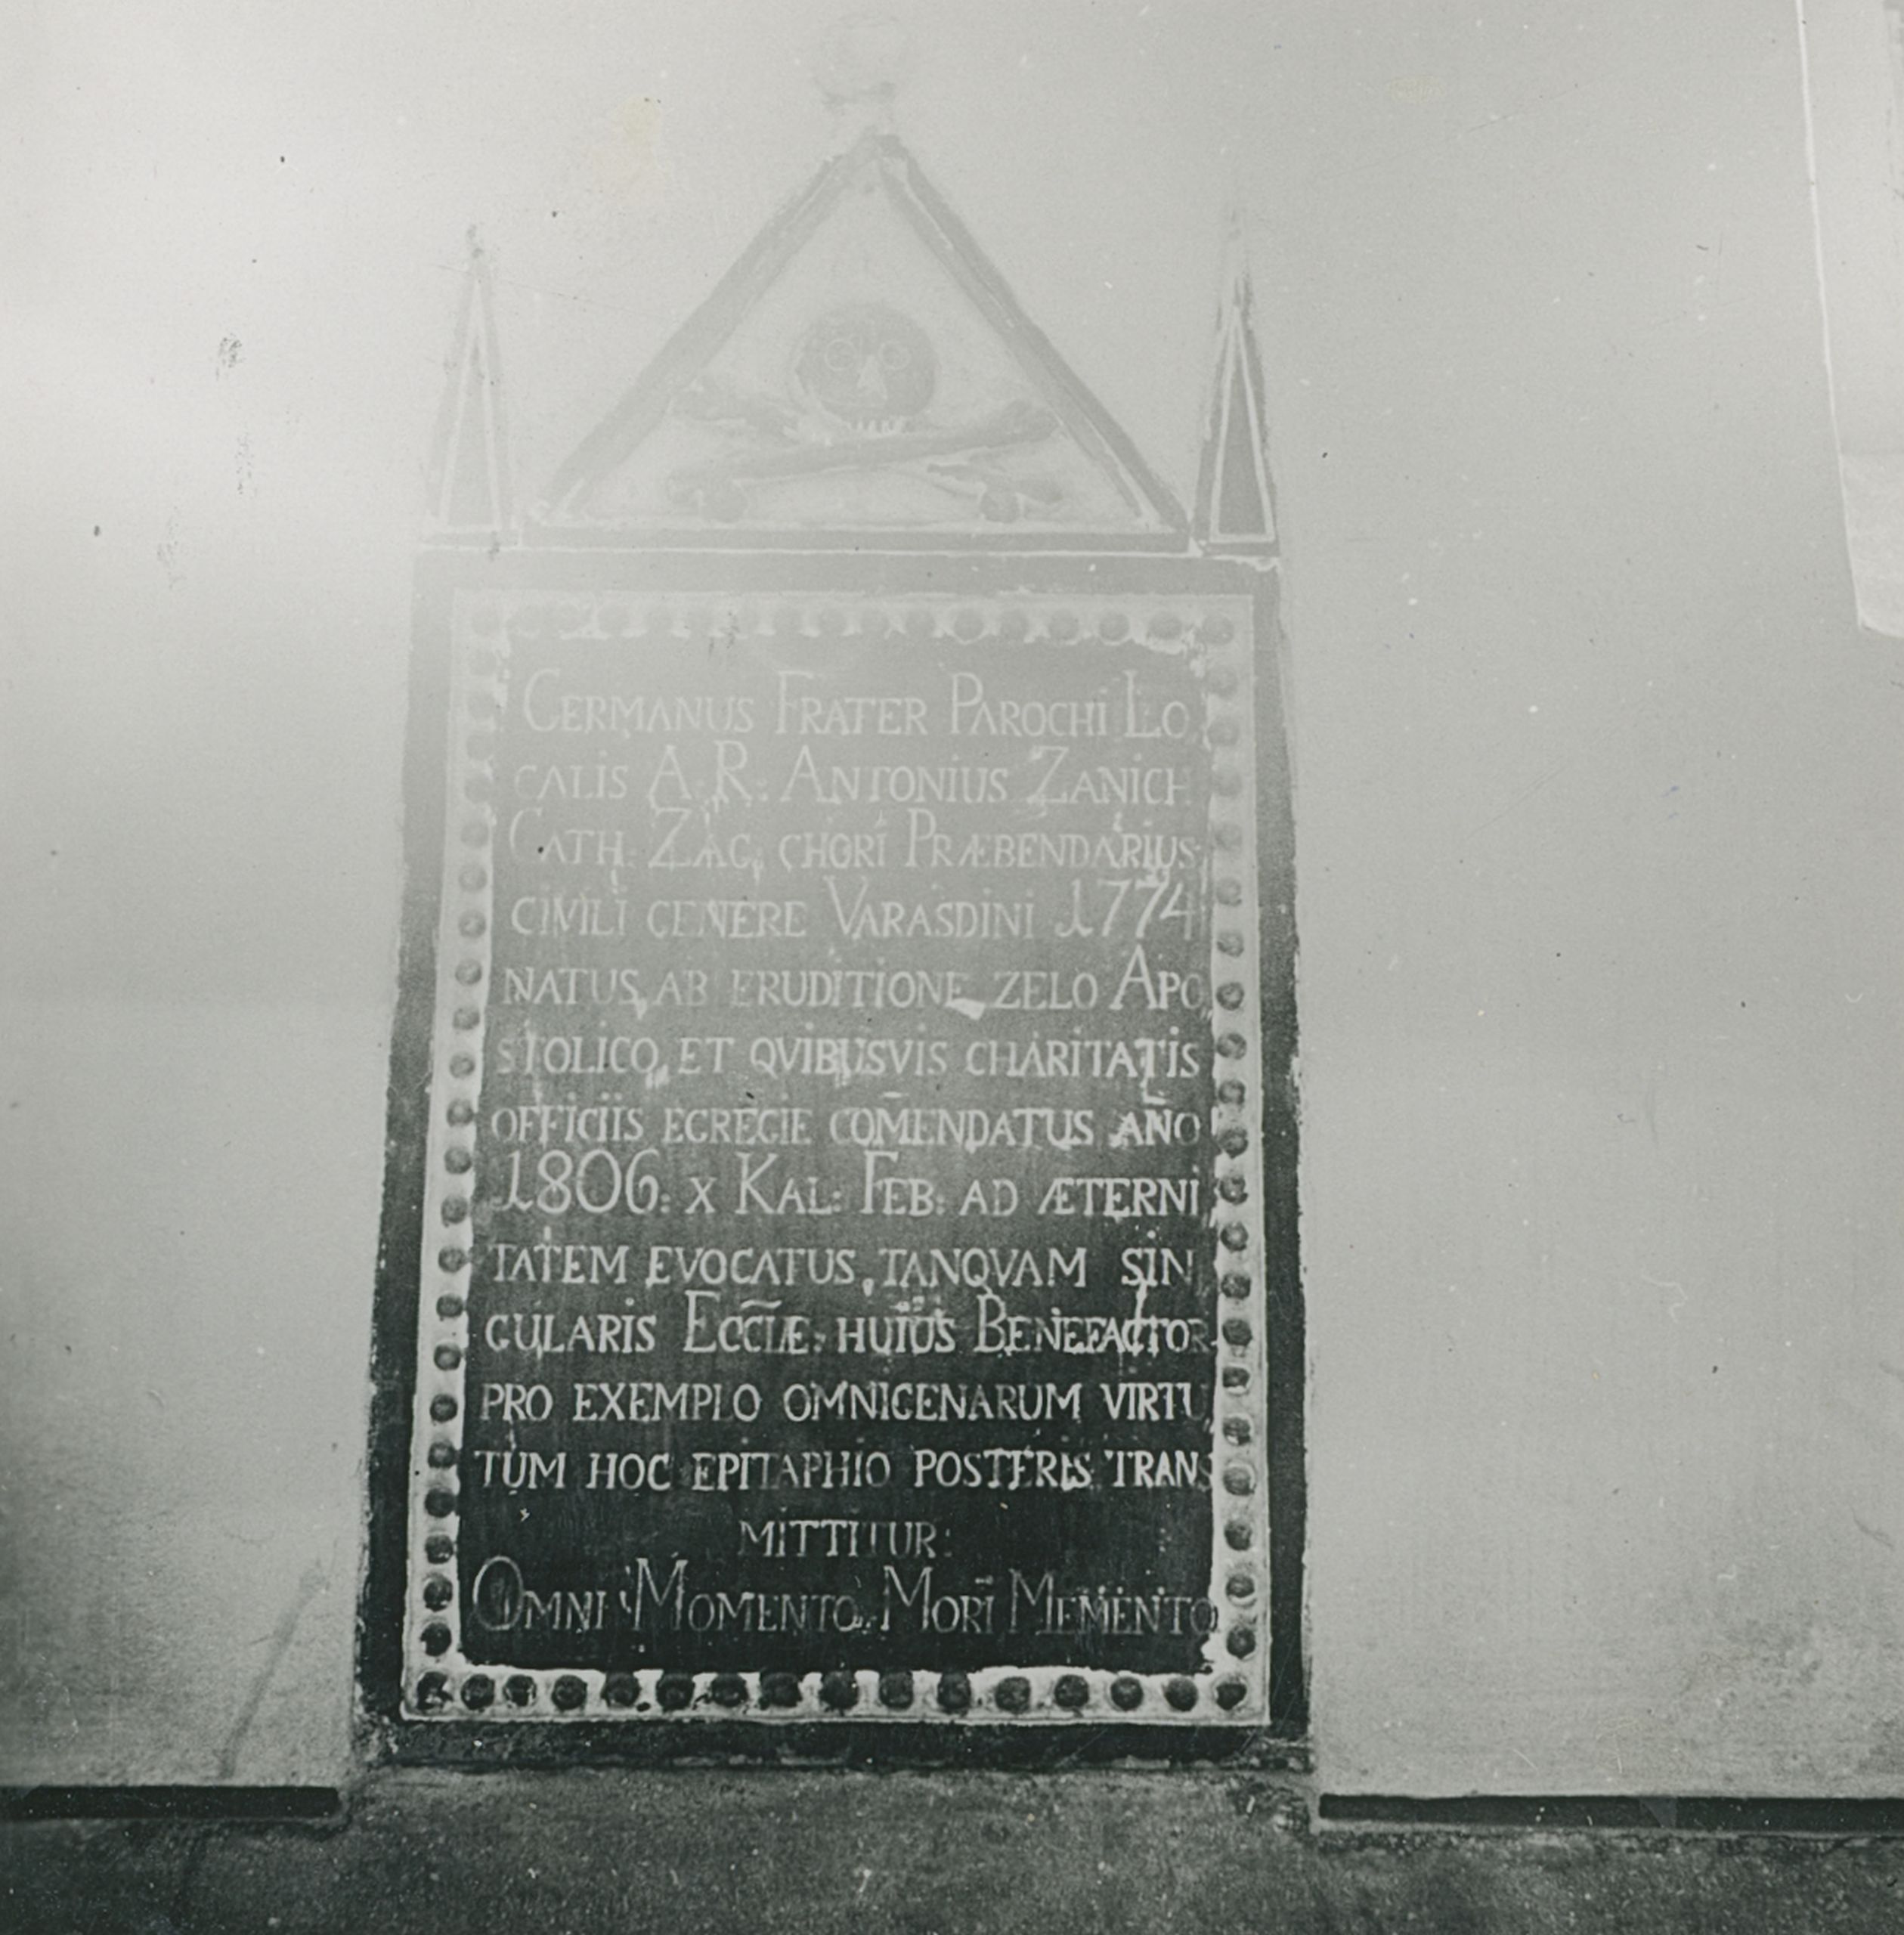 GERMANUS FRATER PAROCHI LO
CALIS A. R: ANTONIUS ZANICH
CATH: ZAG, CHORI PRÆBENDARIUS
CIVILI GENERE VARASDINI 1774
NATUS, AB ERUDITIONE, ZELO APO
STOLICO, ET QVIBUSVIS CHARITATIS
OFFICIIS EGREGIE COM̄ENDATUS AÑO
1806: X KAL: FEB: AD ÆTERNI
TATEM EVOCATUS, TANQVAM SIN
GULARIS ECCĪÆ: HUIUS BENEFACTOR
PRO EXEMPLO OMNIGENARUM VIRTU
TUM HOC EPITAPHIO POSTERIS TRANS
MITTITUR:
OMNI MOMENTO MORI MEMENTO